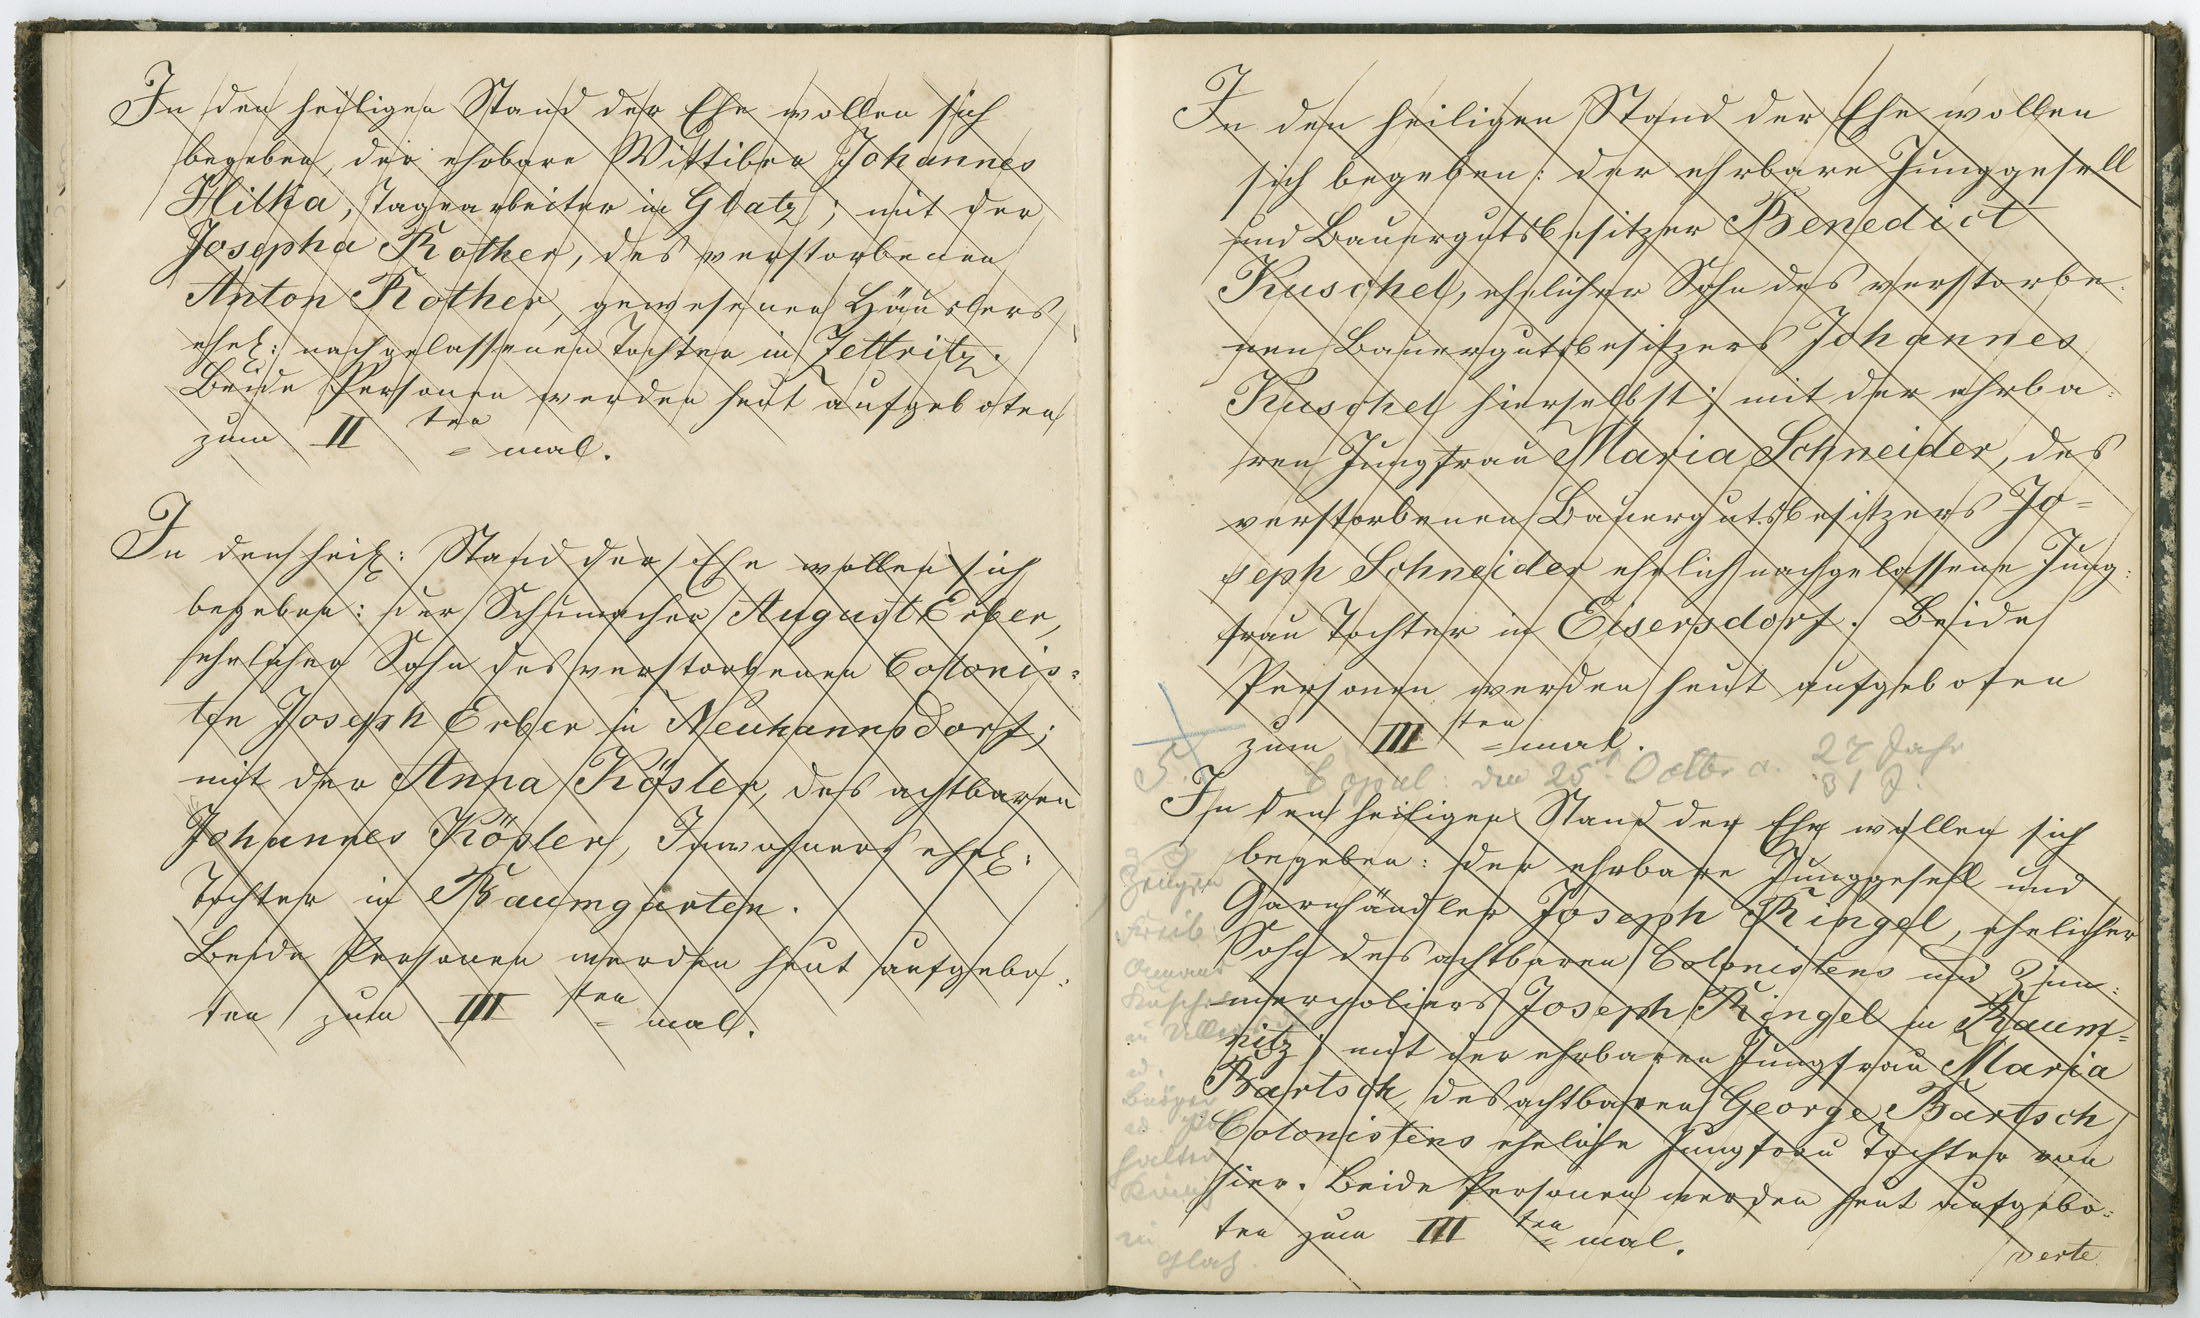 In den heiligen Stand der Ehe wollen sich
begeben, der ehrbare Wittiber Johannes
Hilka, Tagearbeiter in Glatz; mit der
Josepha Rother, des verstorbenen
Anton Rother, gewesenen Häuslers
ehel: nachgelassenen Tochter in Zettritz.
Beide Personen werden heut aufgeboten
zum II ten = mal.
In den heil: Stand der Ehe wollen sich
begeben: der Schumacher August Erber,
ehelicher Sohn des verstorbenen Colonis=
ten Joseph Erber in Neuhannsdorf;
mit der Anna Rösler, des achtbaren
Johannes Rösler, Inwohners ehel:
Tochter in Baumgarten.
Beide Personen werden heut aufgebo=
ten zum III ten = mal.
In den heiligen Stand der Ehe wollen
sich begeben: der ehrbare Junggesell
und Bauergutsbesitzer Benedict
Kuschel, ehelicher Sohn des verstorbe=
nen Bauergutsbesitzers Johannes
Kuschel hierselbst; mit der ehrba=
ren Jungfrau Maria Schneider, des
verstorbenen Bauergutsbesitzers Jo=
seph Schneider ehelich nachgelassene Jung=
frau Tochter in Eisersdorf. Beide
Personen werden heut aufgeboten
zum III ten = mal.
5.
Copul: den 25t Octbr a. 27 Jahr
31 J.
In den heiligen Stand der Ehe wollen sich
begeben: der ehrbare Junggesell und
Garnhändler Joseph Ringel, ehelicher
Sohn des achtbaren Colonistens und Zim=
merpoliers Joseph Ringel in Raum=
nitz; mit der ehrbaren Jungfrau Maria
Bartsch, des achtbaren George Bartsch
Colonistens eheliche Jungfrau Tochter von
hier. Beide Personen werden heut aufgebo=
ten zum III ten = mal.
verte
Zeugen
in
Glatz